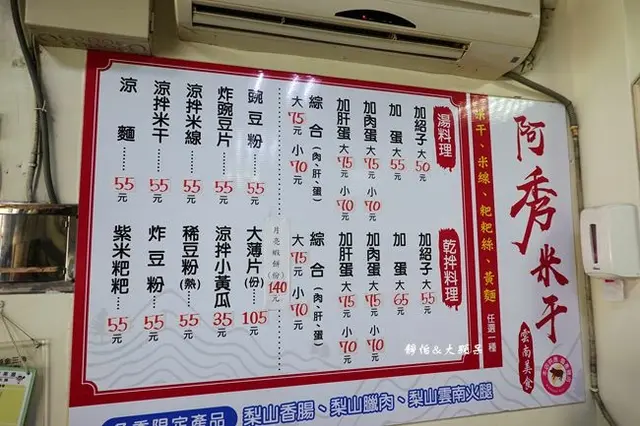 阿秀米干
雲南美食
米干、米線、粑粑絲、黃麵 任選一種
湯料理
加紹子 大50元
加蛋 大55元
加肉蛋 大75元 小70元
加肝蛋 大75元 小70元
綜合(肉、肝、蛋) 大75元 小70元
乾拌料理
加紹子 大55元
加蛋 大65元
加肉蛋 大75元 小70元
加肝蛋 大75元 小70元
綜合(肉、肝、蛋) 大75元 小70元
豌豆粉……55元
炸豌豆片……55元
涼拌米線……55元
涼拌米干……55元
涼麵……55元
月亮蝦餅(份)140元
大薄片(份)105元
涼拌小黃瓜 35元
稀豆粉(熱)55元
炸豆粉……55元
紫米粑粑……55元
梨山香腸、梨山臘肉、梨山雲南火腿